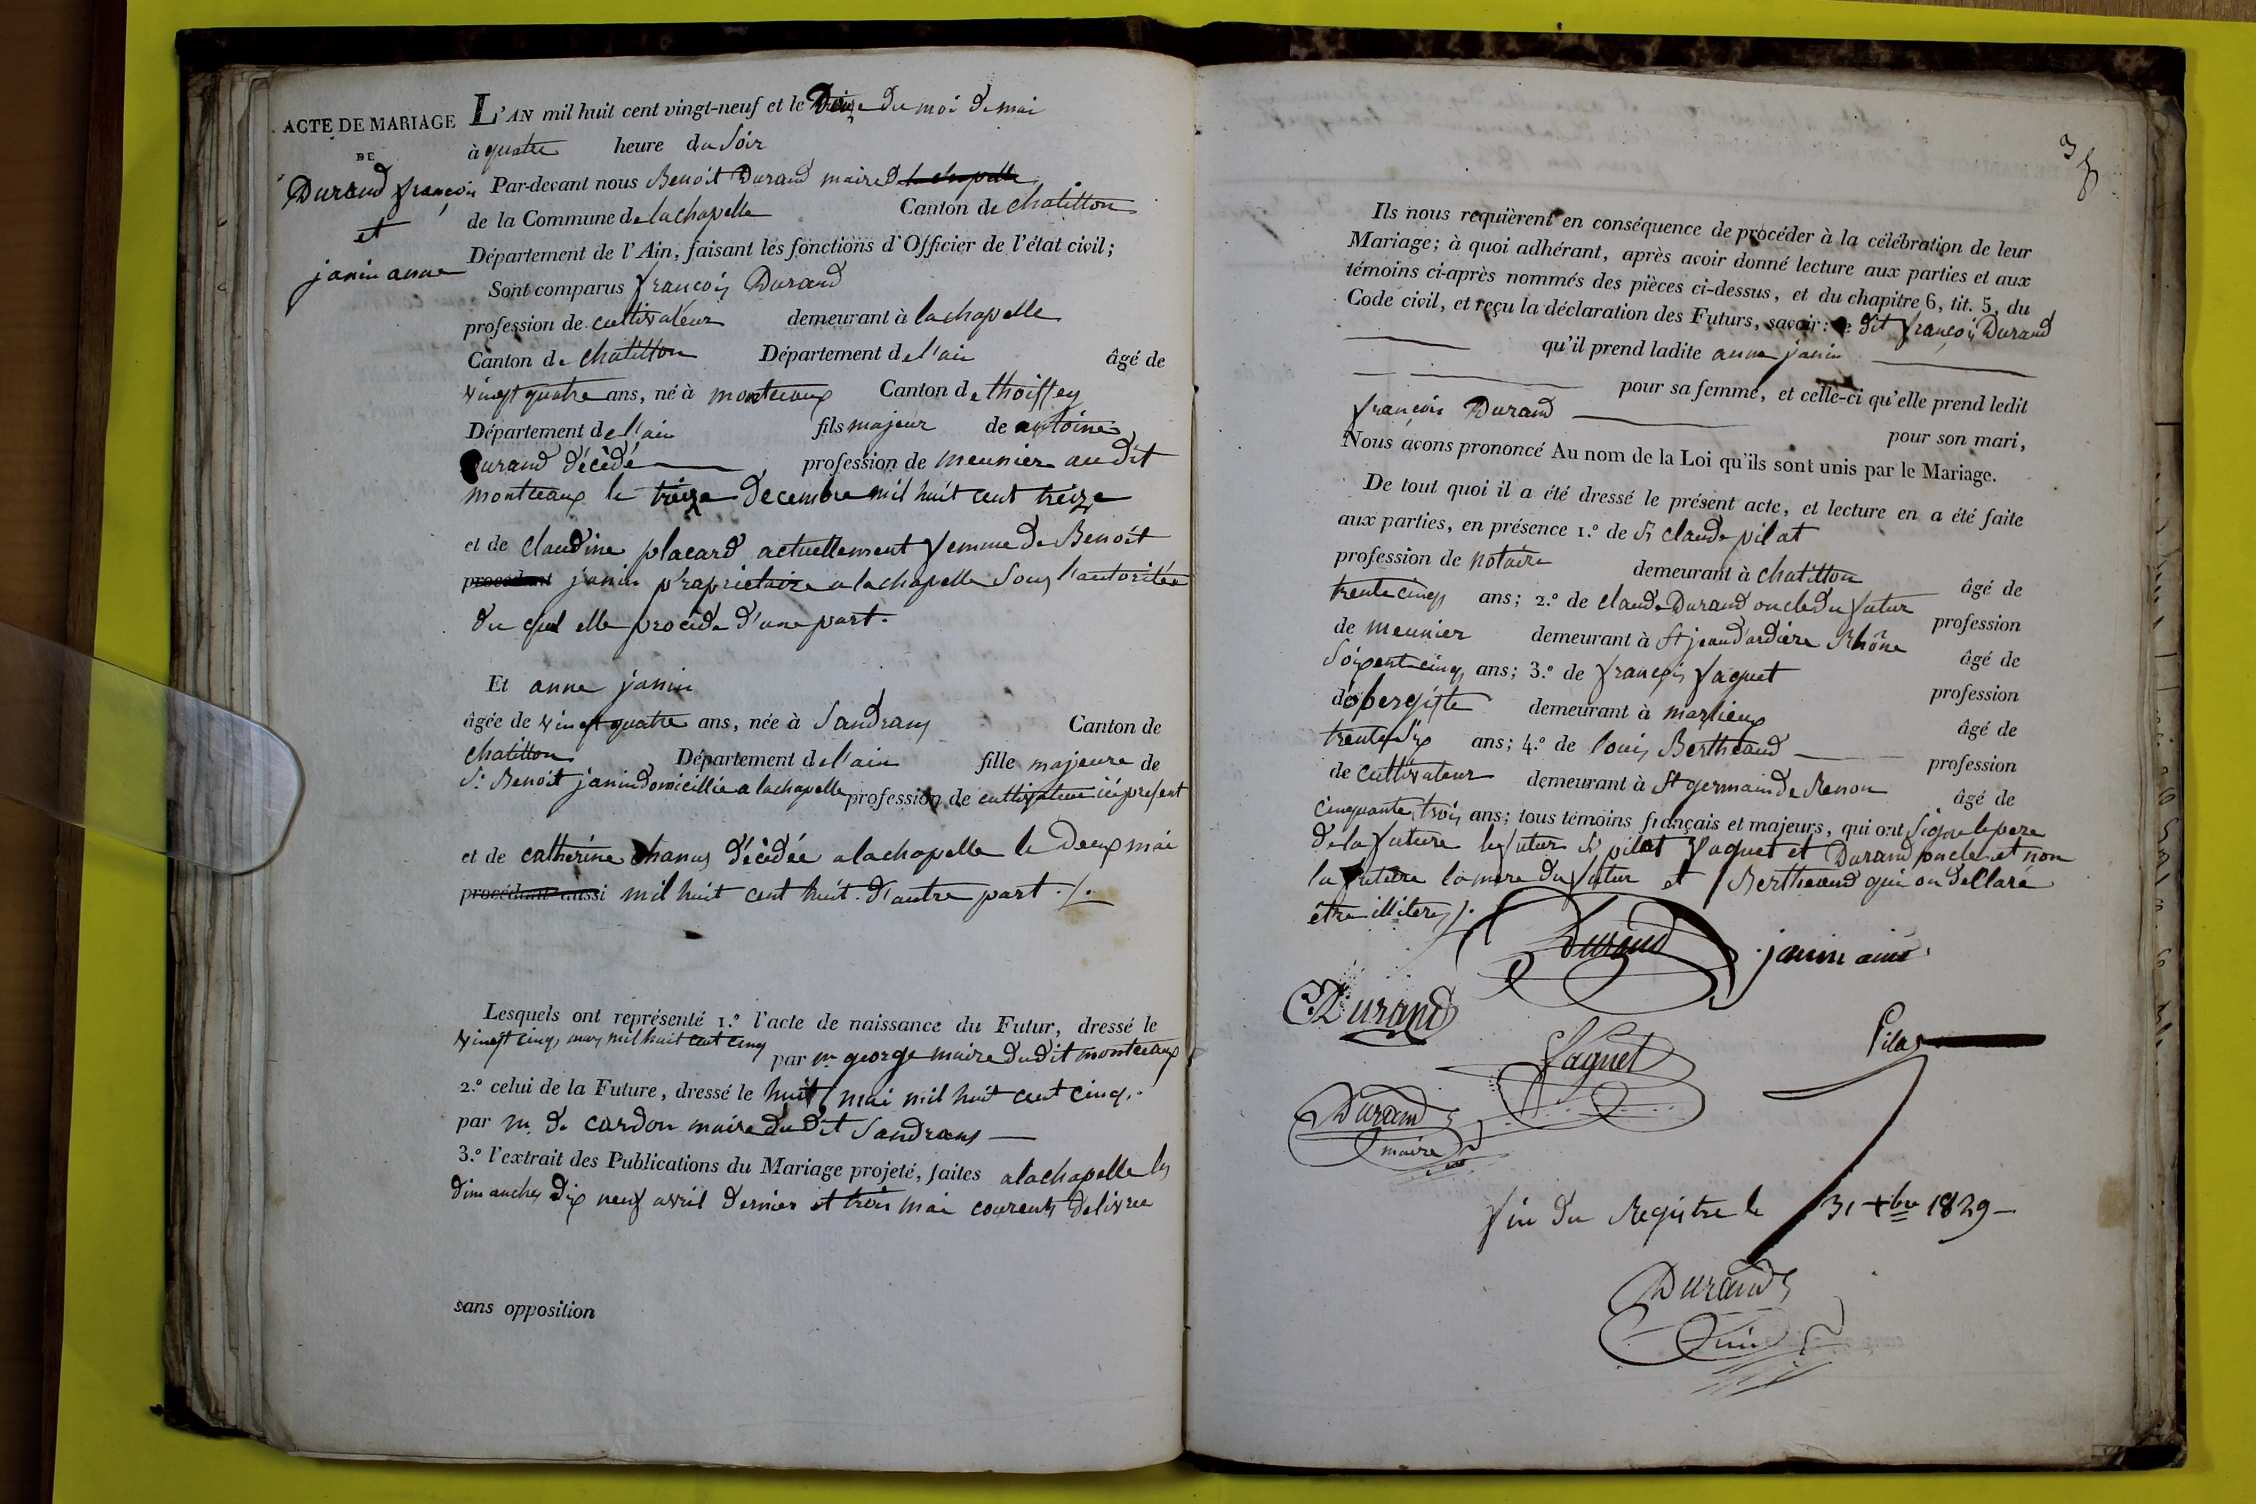 ACTE DE MARIAGE
DE
Durand françois
et
janin anne
L'AN mil huit cent vingt-neuf et le du moi de mai
à quatre heure du Soir
Par-devant nous Benoit Durand maire de lachapelle
de la Commune de lachapelle Canton de chatillon
Département de l'Ain, faisant les fonctions d'Officier de l'état civil;
Sont comparus françois Durand
profession de cultivateur demeurant à lachapelle
Canton de chatillon Département de l'ain âgé de
vingt quatre ans, né à montceaux Canton de thoissey
Département de l'ain fils majeur de antoine
Durand décédé profession de meunier au dit
montceaux le treize decembre mil huit cent treize
et de claudine placard actuellement femme de Benoit
procédant janin propriétaire a lachapelle Sous l'autoritée
du quel elle procède d'une part.
Et anne janin
âgée de vingt quatre ans, née à Sandrans Canton de
chatillon Département de l'ain fille majeure de
Sr. Benoit janin domicillié a lachapelle profession de cultivateur ici présent
et de catherine chanus décédée a lachapelle le deux mai
procédant aussi mil huit cent huit. d'autre part ./.
Lesquels ont représenté 1.º l'acte de naissance du Futur, dressé le
vingt cinq mars mil huit cent cinq par mr george maire dudit montceaux
2.º celui de la Future, dressé le huit mai mil huit cent cinq.
par m. de cardon maire du dit Sandrans
3.º l'extrait des Publications du Mariage projeté, faites a lachapelle les
dimanches dix neuf avril dernier et trois mai courents délivrée
sans opposition
38
Ils nous requièrent en conséquence de procéder à la célébration de leur
Mariage; à quoi adhérant, après avoir donné lecture aux parties et aux
témoins ci-après nommés des pièces ci-dessus, et du chapitre 6, tit. 5, du
Code civil, et reçu la déclaration des Futurs, savoir: le dit françois Durand
qu'il prend ladite anne janin
pour sa femme, et celle-ci qu'elle prend ledit
françois Durand pour son mari,
Nous avons prononcé Au nom de la Loi qu'ils sont unis par le Mariage.
De tout quoi il a été dressé le présent acte, et lecture en a été faite
aux parties, en présence 1.º de Sr claude pilat
profession de notaire demeurant à chatillon âgé de
trente cinq ans; 2.º de claude Durand oncle du futur profession
de meunier demeurant à St jean d'ardière Rhône âgé de
Soixente cinq ans; 3.º de françois faguet profession
d'obergiste demeurant à marlieux âgé de
trente six ans; 4.º de louis Bertheaud profession
de cultivateur demeurant à St germain de Renon âgé de
cinquante trois ans; tous témoins français et majeurs, qui ont Signé le pere
de la future le futur Sr pilat faguet et Durand oncle et non
la future la mere du futur et Bertheaud qui on déllaré
être illiterés /.
Durand janin ainé
C Durand
Pilat
faguet
Durand
maire
fin du Registre le 31 xbre 1829
Durand
maire